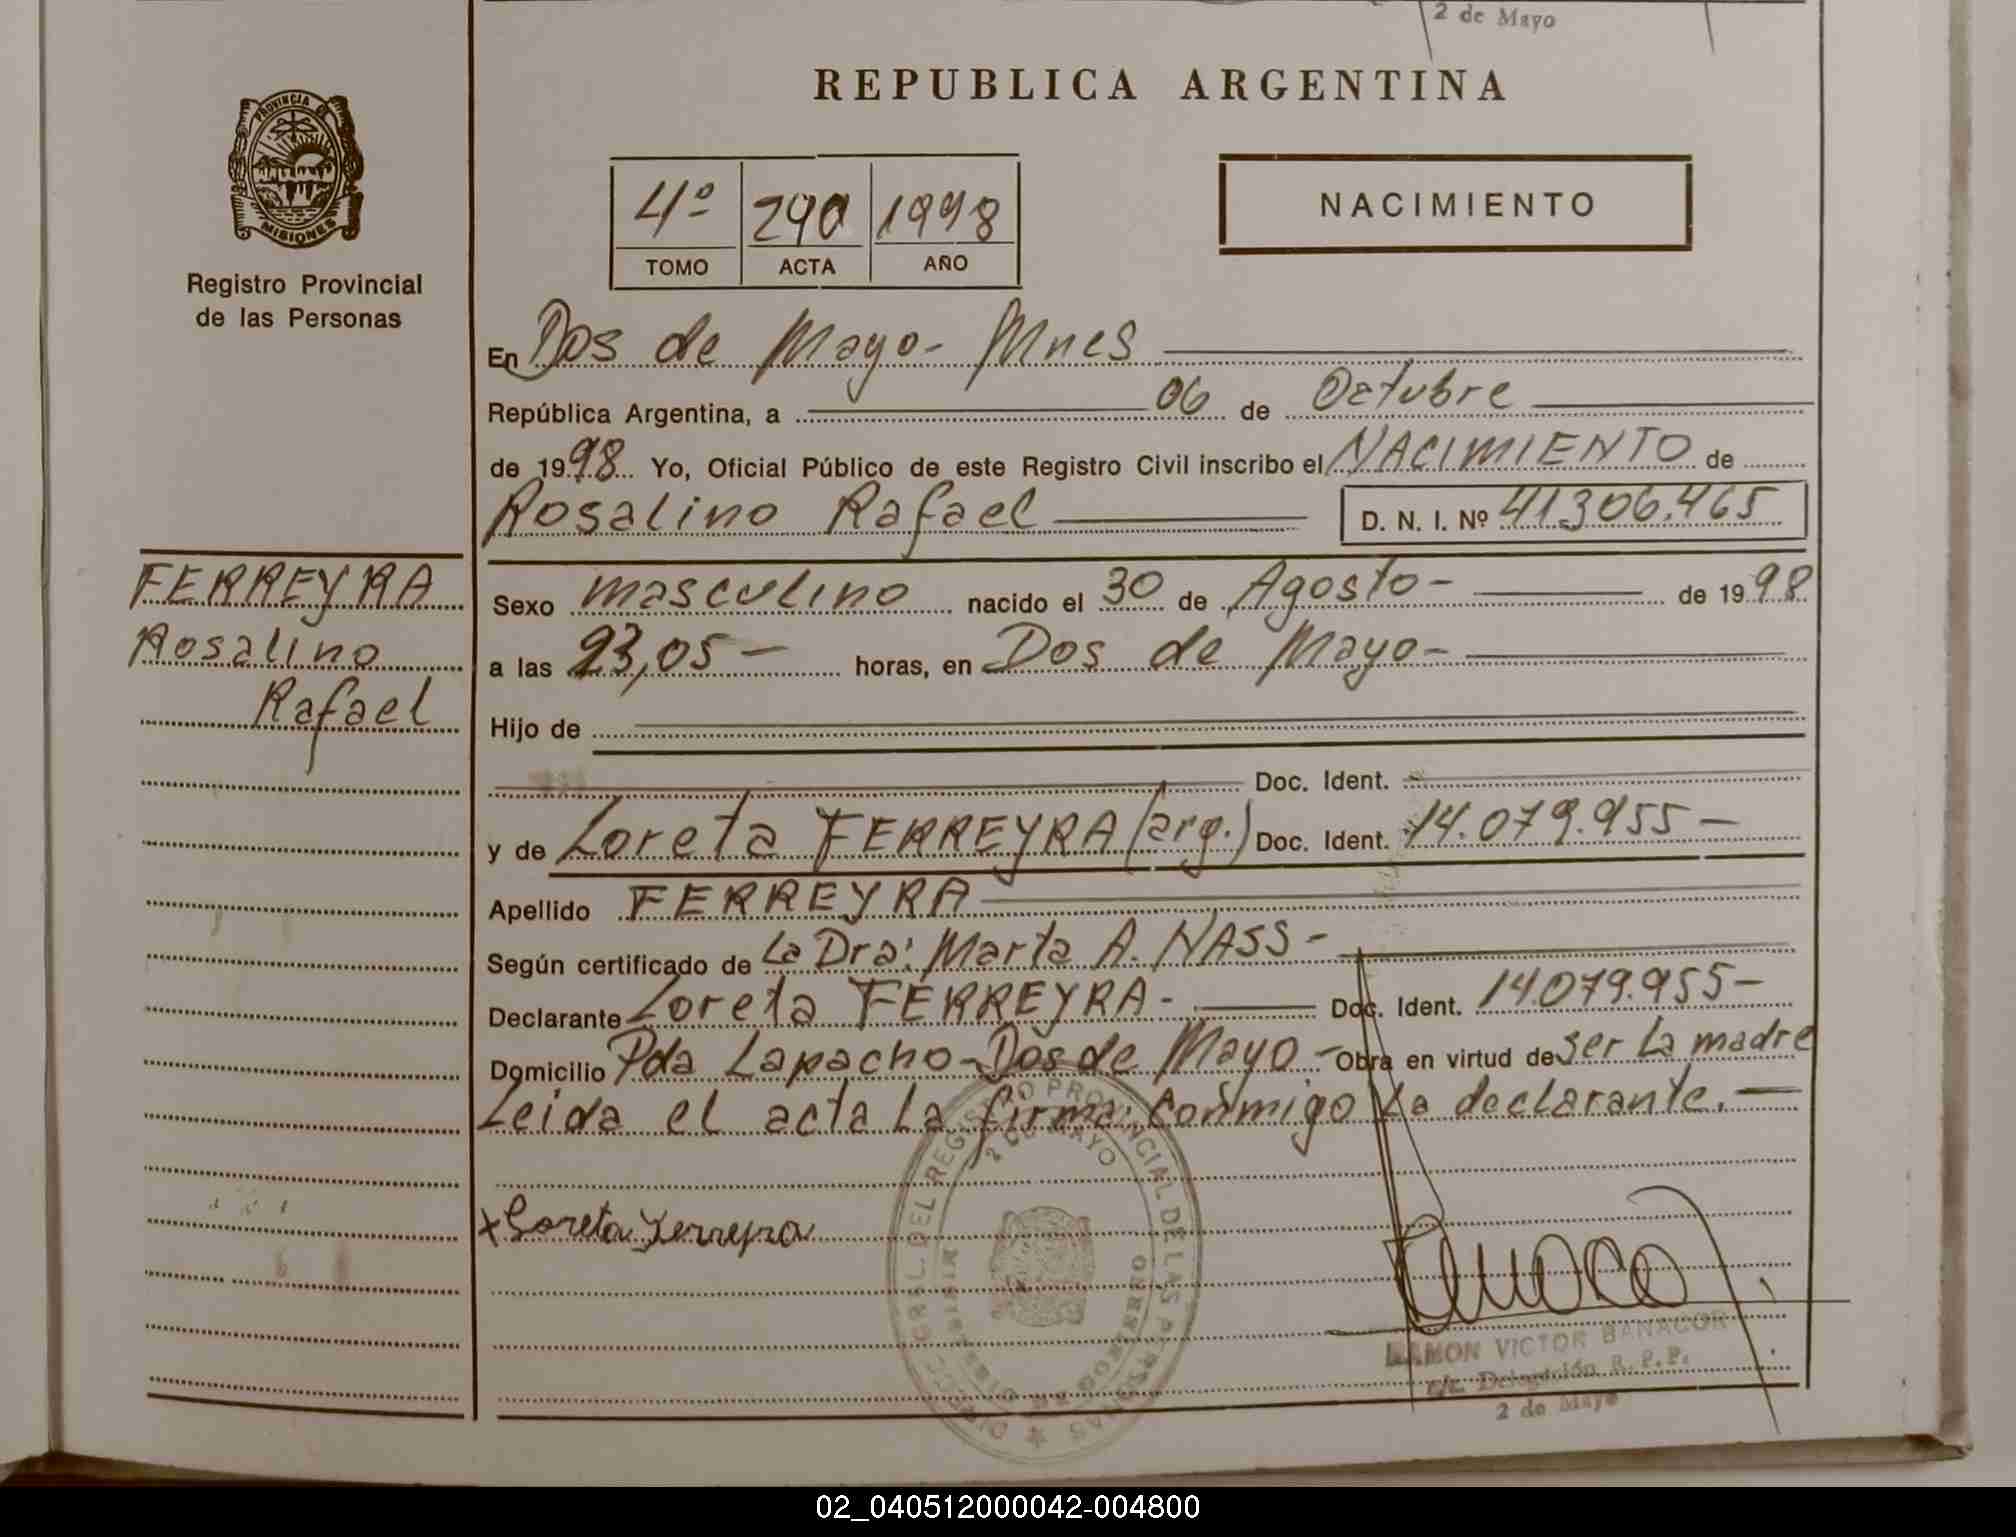 2 de Mayo
REPUBLICA ARGENTINA
PROVINCIA DE
MISIONES
Registro Provincial
de las Personas
4º 290 1998
TOMO ACTA AÑO
NACIMIENTO
En Dos de Mayo - Mnes
República Argentina, a 06 de Octubre
de 1998 Yo, Oficial Público de este Registro Civil inscribo el NACIMIENTO de
Rosalino Rafael D. N. I. Nº 41306.465
FERREYRA
Rosalino
Rafael
Sexo masculino nacido el 30 de Agosto - de 1998
a las 23,05 - horas, en Dos de Mayo -
Hijo de
Doc. Ident.
y de Loreta FERREYRA (arg.) Doc. Ident. 14.079.955 -
Apellido FERREYRA
Según certificado de La Dra: Marta A. NASS -
Declarante Loreta FERREYRA - Doc. Ident. 14.079.955 -
Domicilio Pda Lapacho - Dos de Mayo - Obra en virtud de ser La madre
Leida el acta La firma conmigo La declarante. -
x Loreta Ferreyra
GRAL. DEL REGISTRO PROVINCIAL DE LAS PERSONAS
2 DE MAYO
RAMON VICTOR BANACOR
r/c. Delegación R. P. P.
2 de Mayo
02_040512000042-004800